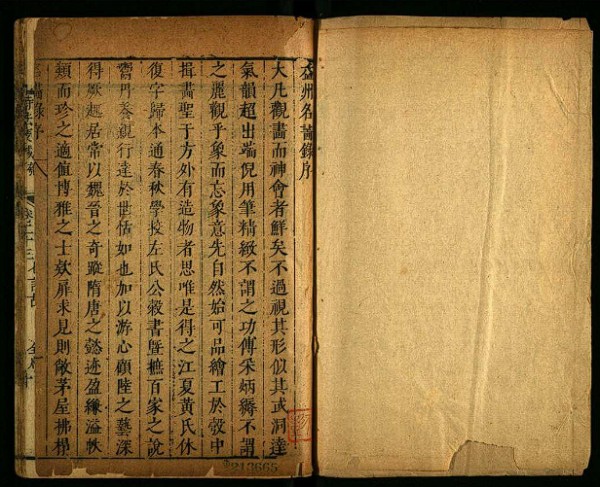 益州名畫錄序
大凡觀畫而神會者鮮矣不過視其形似其或洞達
氣韻超出端倪用筆精緻不謂之功傳采炳縟不謂
之麗觀乎象而忘象意先自然始可品繪工於彀中
揖畫聖于方外有造物者思唯是得之江夏黃氏休
復字歸本通春秋學校左氏公穀書暨摭百家之說
鬻丹養親行達於世恬如也加以游心顧陸之藝深
得厥趣居常以魏晉之奇蹤隋唐之懿迹盈縑溢帙
類而珍之適值博雅之士欵扉求見則敞茅屋拂榻
213665